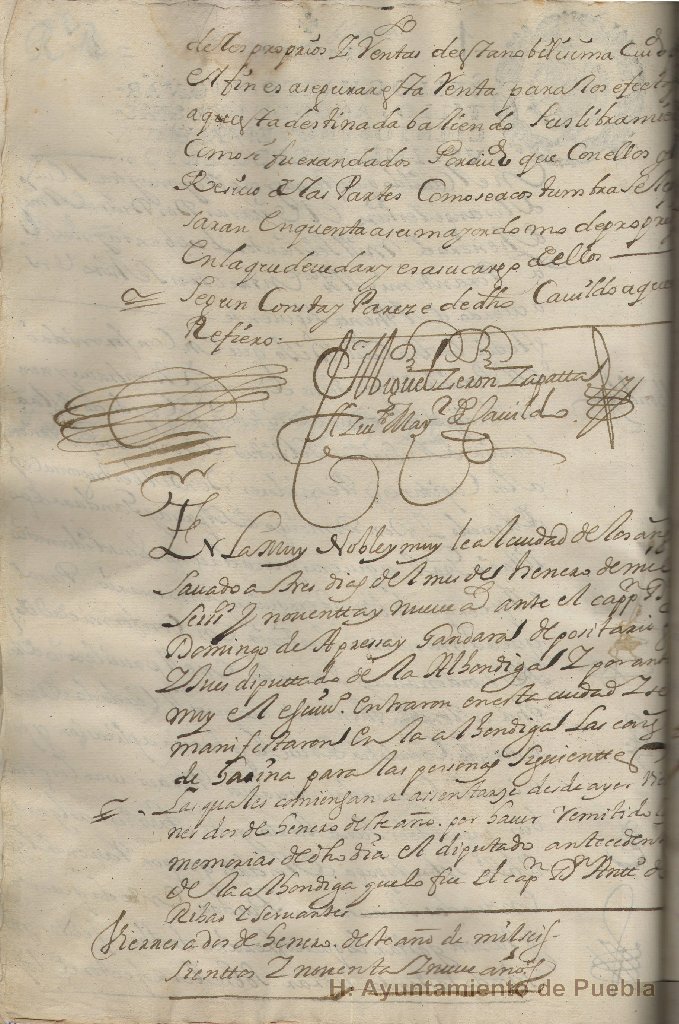 de los proprios y Ventas de esta nobilisima Ciud
el fin es asegurar esta Venta para los efectos
a que esta destinada baliendo sus libramie
Como si fueran dados por que con ellos
Resivo de las Partes Como se acostumbra se le
saran en quenta a su mayordomo de propri
En la que deve dar y es a su cargo de ellos
Segun Consta y Pareze de dho Cavildo a que
Refiero
Miguel Zeron Zapatta
Mayr de Cavildo
En La Muy Noble y muy leal ciudad de los ang
Savado a tres dias del mes de henero de mill
Seisso y noventta y nueve as ante el cappn D
Domingo de Apressa y Gandaral depositario
y Jues diputtado de la Alhondiga y por ante
my el escrivo entraron en esta ciudad y se
manifestaron En la alhondiga Las cargs
de harina para las personas siguienttes
Las quales comiensan a assentarse desde ayer vie
nes dos de henero deste año por haver remitido
memorias de dho dia el diputado antecedent
de la alhondiga que lo fue el capn Dn Antto de
Ribas y servantes
Viernes a dos de henero deste año de mil seis
sienttos y noventa y nueve años
H. Ayuntamiento de Puebla